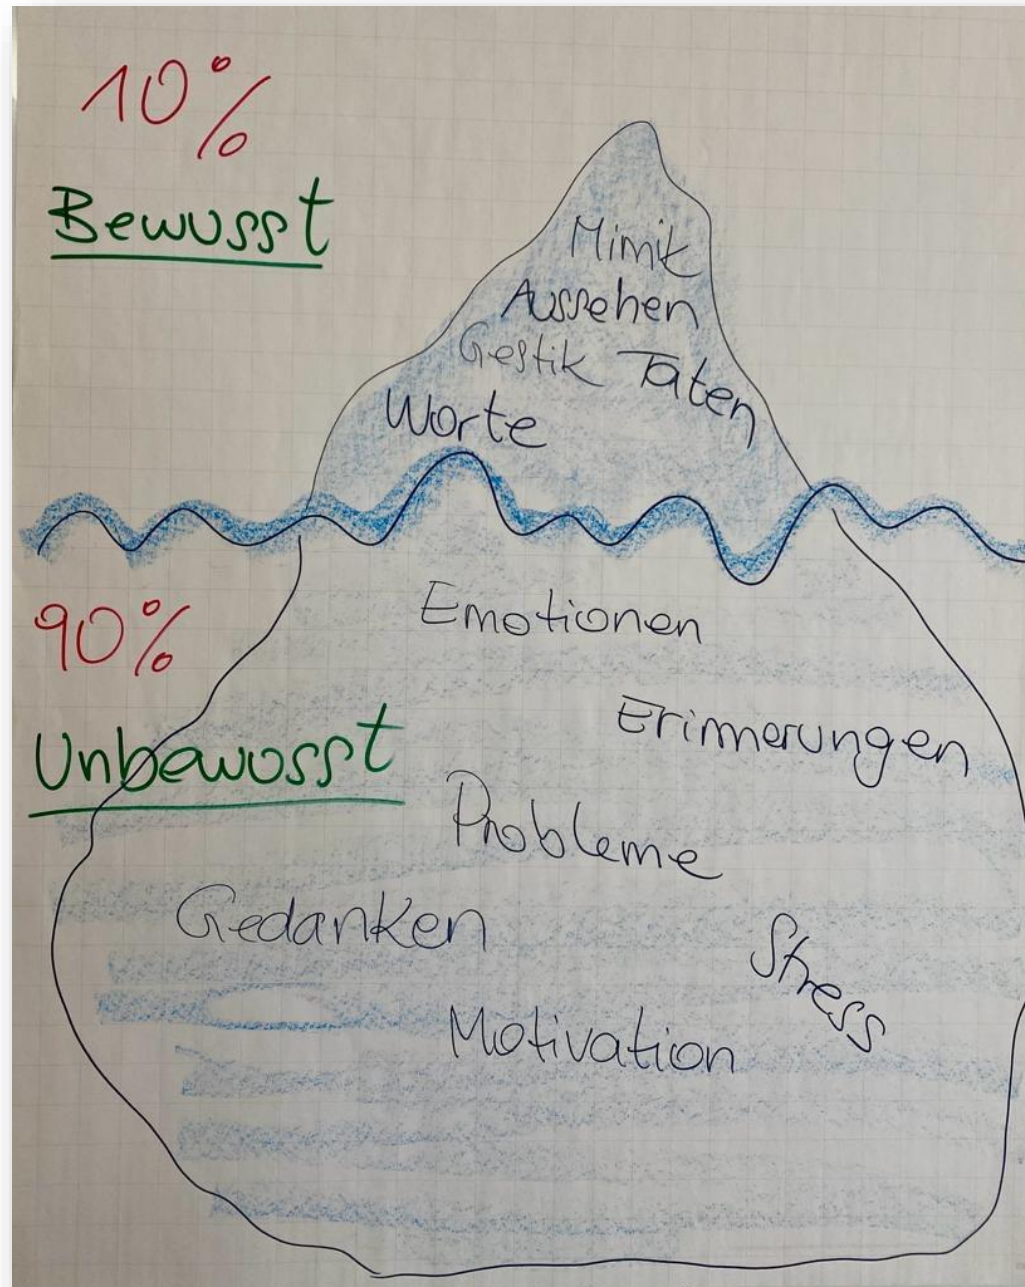 10%
Bewusst
Mimik
Aussehen
Gestik Taten
Worte
90%
Unbewusst
Emotionen
Erinnerungen
Probleme
Gedanken
Stress
Motivation